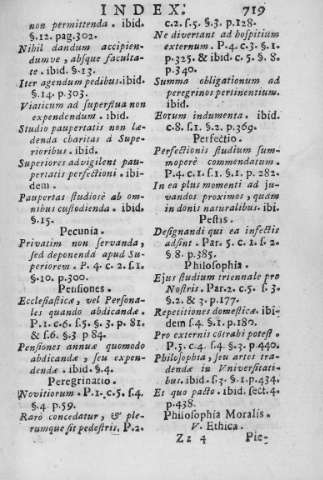 INDEX.
719
non permittenda. ibid.
§.12. pag.302.
Nihil dandum accipien-
dumve, absque faculta-
te. ibid. §.13.
Iter agendum pedibus.ibid.
§.14. p.303.
Viaticum ad superflua non
expendendum. ibid.
Studio paupertatis non læ-
denda charitas à Supe-
rioribus. ibid.
Superiores advigilent pau-
pertatis perfectioni. ibi-
dem.
Paupertas studiosè ab om-
nibus custodienda. ibid.
§.15.
Pecunia.
Privatim non servanda,
sed deponenda apud Su-
periorem. P. 4. c. 2. s.1.
§.10. p.300.
Pensiones.
Ecclesiasticæ, vel Persona-
les quando abdicandæ.
P.1. c.6. s.5. §.3. p. 81
& s.6. §.3 p. 84.
Pensiones annuæ quomodo
abdicandæ, seu expen-
dendæ. ibid. §.4.
Peregrinatio.
Novitiorum. P.1. c.5. s.4.
§.4 p.59.
Rarò concedatur, & ple-
rumque sit pedestris. P.2.
c.2. s.5. §.3. p.128.
Ne divertant ad hospitium
externum. P.4. c.3. §.1.
p.325. & ibid c. 5. §. 8.
p.340.
Summa obligationum ad
peregrinos pertinentium.
ibid.
Eorum indumenta. ibid.
c.8. s.1. §.2. p.369.
Perfectio.
Perfectionis studium sum-
moperè commendatum.
P.4. c.1. s.1. §.1. p. 282.
In ea plus momenti ad ju-
vandos proximos, quàm
in donis naturalibus. ibi.
Pestis.
Designandi qui ea infectis
adsint. Par. 5. c. 1. s. 2.
§ 8. p.385.
Philosophia.
Ejus studium triennale pro
Nostris. Par.2. c.5. s.3.
§.2. & 3. p.177.
Repetitiones domesticæ. ibi-
dem s.4. §.1. p.180.
Pro externis còtrahi potest.
P.5. c.4. s.4 §.3. p.440.
Philosophia, seu artes tra-
dendæ in Vniversitati-
bus. ibid. s.3. §.1. p.434.
Et quo pacto. ibid. sect.4.
p.438.
Philosophia Moralis.
V. Ethica.
Zz 4
Pie-